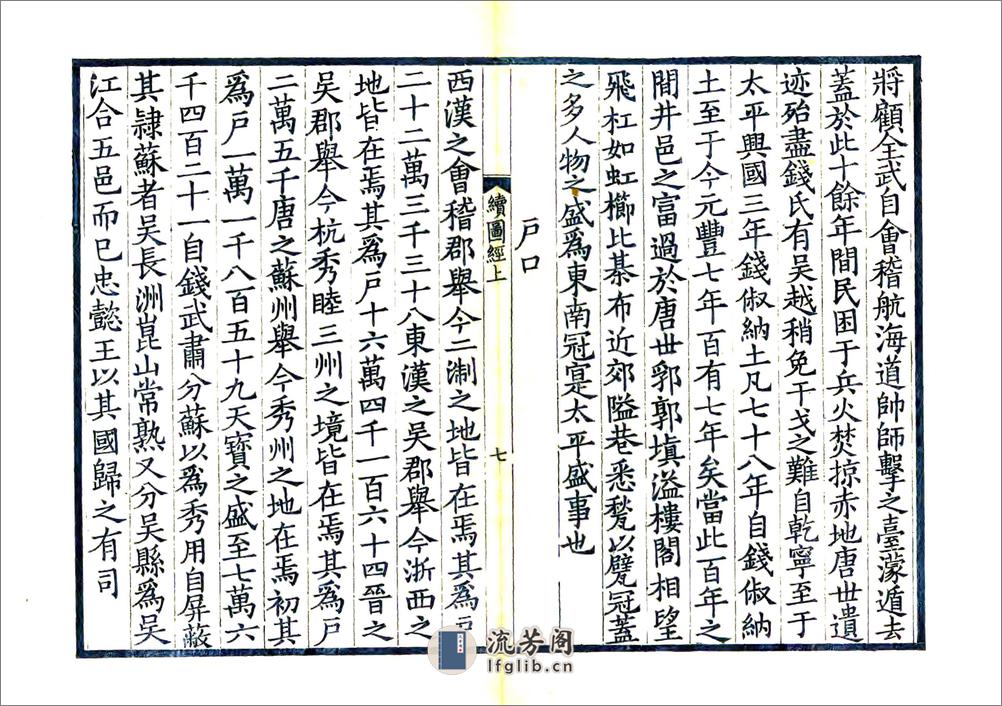 將顧全武自會稽航海道帥師擊之臺濛遁去
蓋於此十餘年間民困于兵火焚掠赤地唐世遺
迹殆盡錢氏有吳越稍免干戈之難自乾寧至于
太平興國三年錢俶納土凡七十八年自錢俶納
土至于今元豐七年百有七年矣當此百年之
間井邑之富過於唐世郛郭填溢樓閣相望
飛杠如虹櫛比棊布近郊隘巷悉甃以甓冠蓋
之多人物之盛爲東南冠寔太平盛事也
戶口
續圖經上
七
西漢之會稽郡舉今二淛之地皆在焉其爲戶
二十二萬三千三十八東漢之吳郡舉今浙西之
地皆在焉其爲戶十六萬四千一百六十四晉之
吳郡舉今杭秀睦三州之境皆在焉其爲戶
二萬五千唐之蘇州舉今秀州之地在焉初其
爲戶一萬一千八百五十九天寶之盛至七萬六
千四百二十一自錢武肅分蘇以爲秀用自屏蔽
其隷蘇者吳長洲崑山常熟又分吳縣爲吳
江合五邑而已忠懿王以其國歸之有司
流芳阁
lfglib.cn